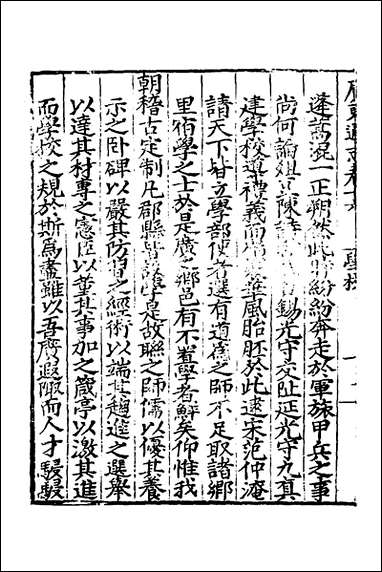 廣東通志卷 學校
蓬蒿混一正朔然此時紛紛奔走於軍旅甲兵之事
尚何論俎豆陳詩 錫光守交趾延光守九真
建學校導禮義而 華風胎胚於此逮宋范仲淹
請天下皆立學部使者選有道 之師不足取諸鄉
里宿學之士於是廣之鄉邑有不置學者鮮矣仰惟我
朝稽古定制凡郡縣皆 學是故聯之師儒以優其養
示之卧碑以嚴其防習之經術以端其趨進之選舉
以達其材專之憲臣以董其事加之箴亭以激其進
而學校之規於斯為盡雖以吾廣遐陬而人才駸駸